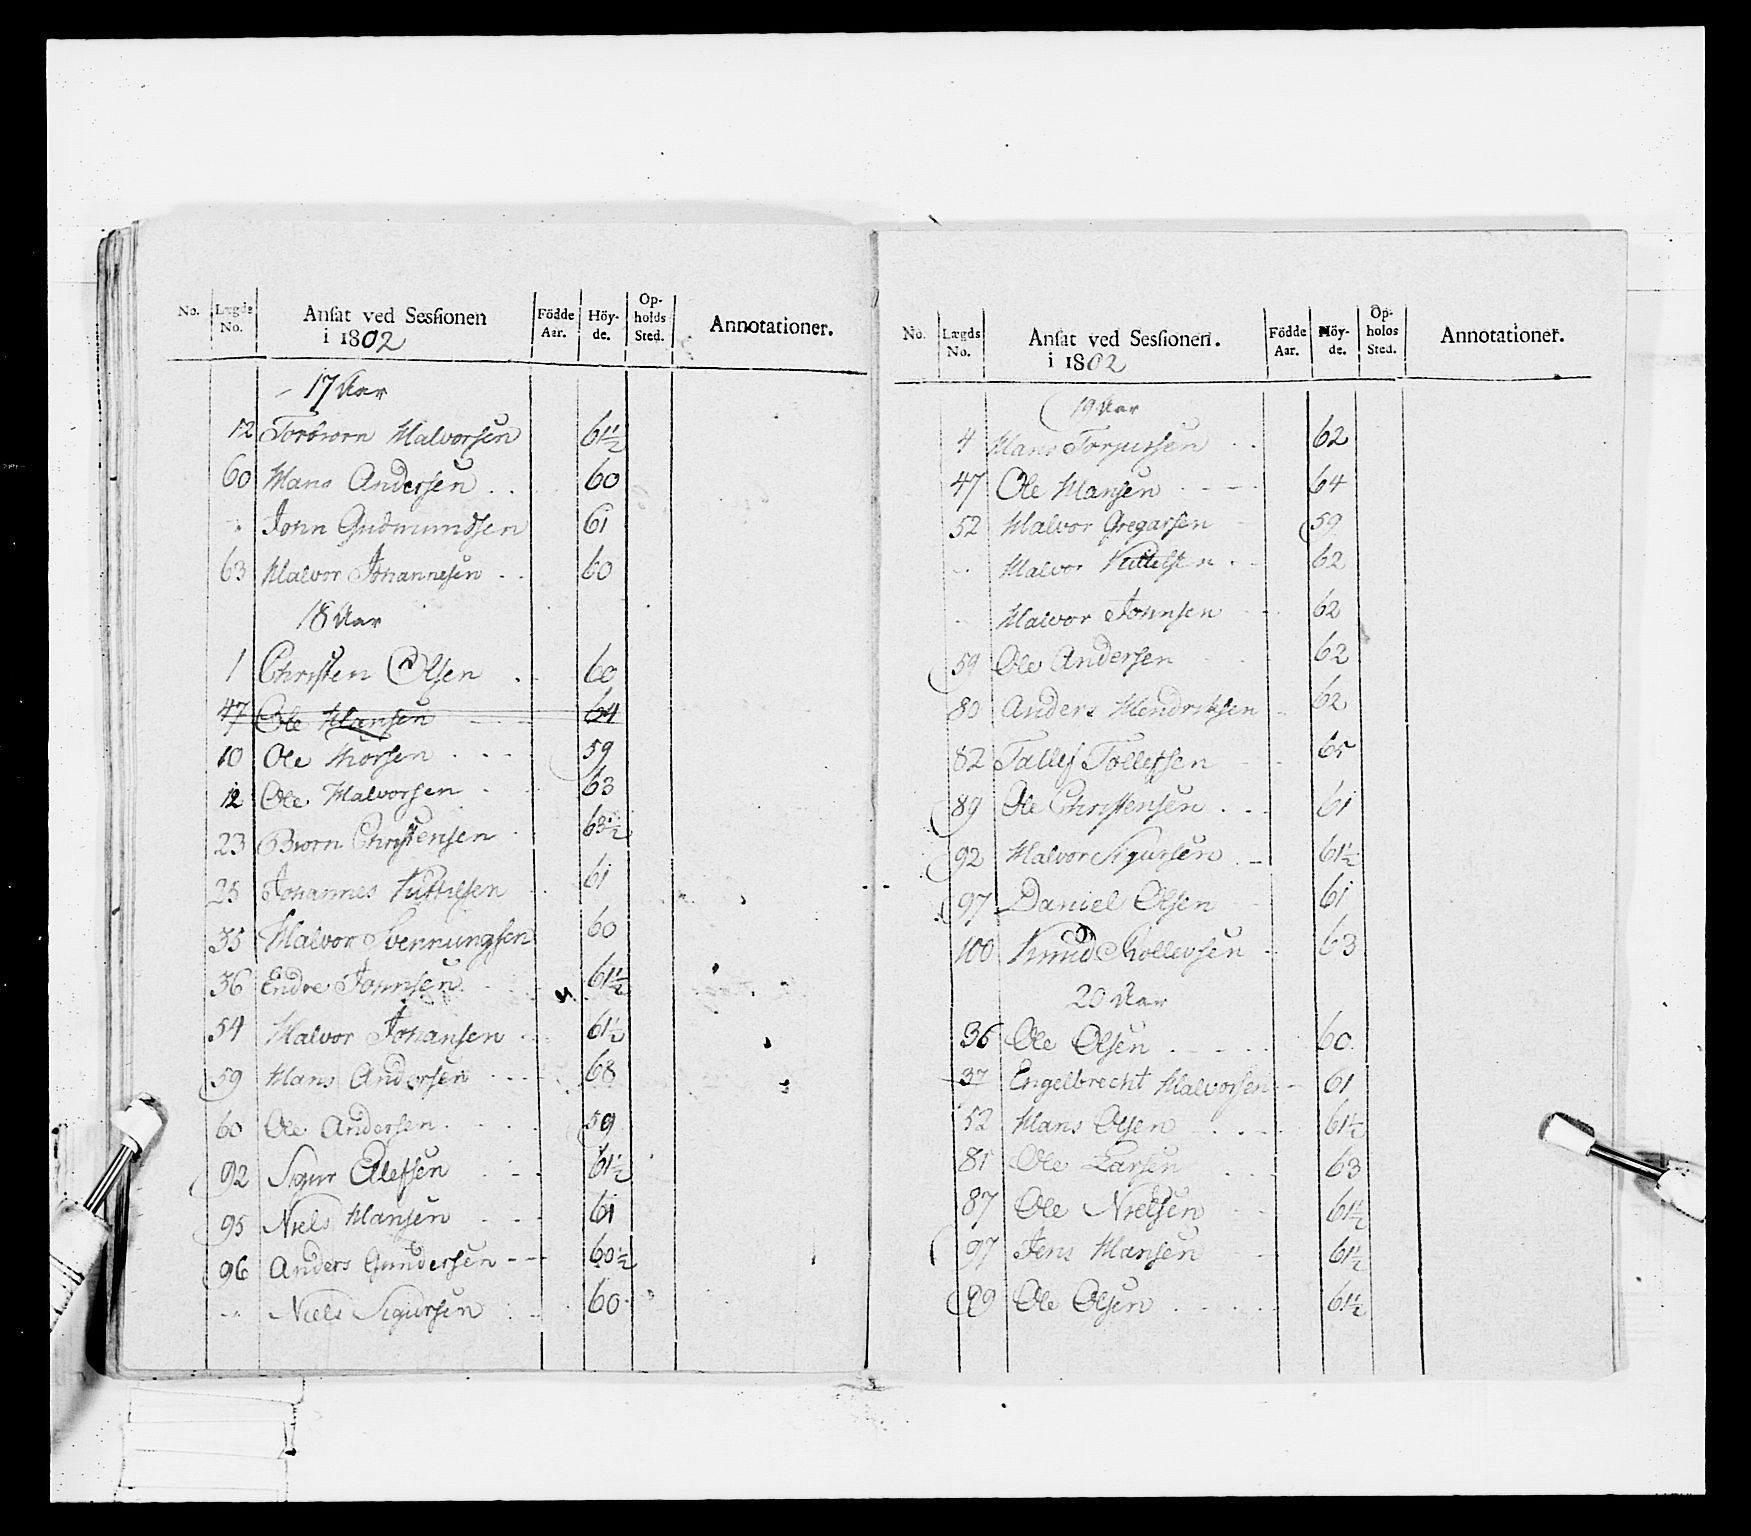 No. Lægds No. Ansat ved Sessionen i 1802 Födde Aar. Höy-de. Op-holds Sted. Annotationer.
17 Aar
12 Torbiorn Halvorsen 61½
60 Hans Andersen 60
" John Gudmundsen 61
63 Halvor Johannesen 60
18 Aar
1 Christen Olsen 60
47 Ole Hansen 64
10 Ole Thorsen 59
12 Ole Halvorsen 63
23 Biorn Christensen 63½
25 Johannes Kittilsen 61
35 Halvor Svennungsen 60
36 Endre Johnsen 61½
54 Halvor Johansen 61½
59 Hans Andersen 68
60 Ole Andersen 59
92 Sigur Olefsen 61½
95 Niels Hansen 61
96 Anders Gundersen 60½
" Niels Sigursen 60
No. Lægds No. Ansat ved Sessionen. i 1802 Födde Aar. Höy-de. Op-holds Sted. Annotationer.
19 Aar
4 Hans Torgersen 62
47 Ole Hansen 64
52 Halvor Gregarsen 59
" Halvor Kittelsen 62
" Halvor Johnsen 62
59 Ole Andersen 62
80 Anders Hendriksen 62
82 Tallef Tollefsen 65
89 Ole Christensen 61
92 Halvor Sigursen 61½
97 Daniel Olsen 61
100 Knud Thollevsen 63
20 Aar
36 Ole Olsen 60
37 Engelbrecht Halvorsen 61
52 Hans Olsen 61½
81 Ole Larsen 63
87 Ole Nielsen 61½
97 Jens Hansen 61½
99 Ole Olsen 61½